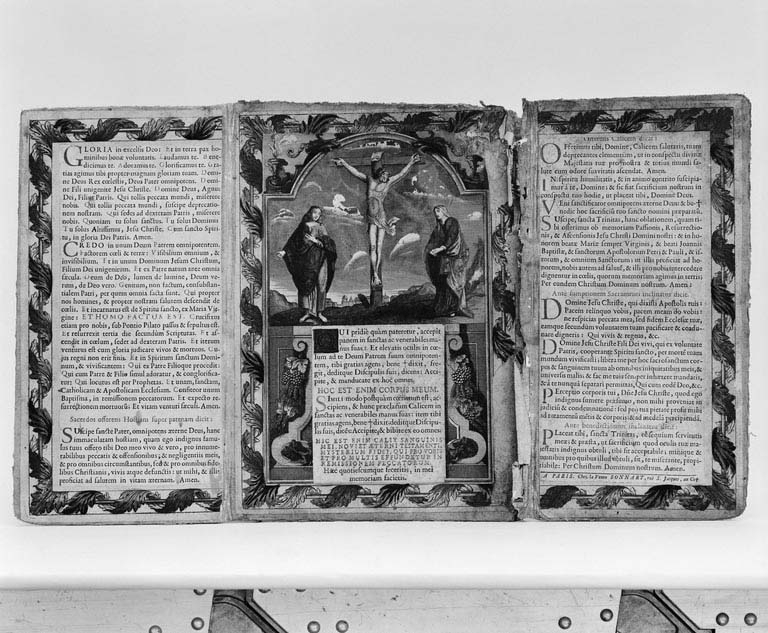 GLORIA in excelsis Deo: Et in terra pax ho-
minibus bonæ voluntatis. Laudamus te. Bene-
dicimus te. Adoramus te. Glorificamus te. Gra-
tias agimus tibi propter magnam gloriam tuam. Domi-
ne Deus Rex cœlestis, Deus Pater omnipotens. Domi-
ne Fili unigenite Jesu Christe. Domine Deus, Agnus
Dei, Filius Patris. Qui tollis peccata mundi, miserere
nobis. Qui tollis peccata mundi, suscipe deprecatio-
nem nostram. Qui sedes ad dexteram Patris, miserere
nobis. Quoniam tu solus sanctus. Tu solus Dominus
Tu solus Altissimus, Jesu Christe. Cum sancto Spiri-
tu, in gloria Dei Patris. Amen.
CREDO in unum Deum Patrem omnipotentem,
Factorem cœli & terræ: Visibilium omnium, &
invisibilium. Et in unum Dominum Jesum Christum,
Filium Dei unigenitum. Et ex Patre natum ante omnia
sæcula. Deum de Deo, lumen de lumine, Deum ve-
rum, de Deo vero. Genitum, non factum, consubstan-
tialem Patri, per quem omnia facta sunt. Qui propter
nos homines, & propter nostram salutem descendit de
cœlis. Et incarnatus est de Spiritu sancto, ex Maria Vir-
gine: ET HOMO FACTUS EST. Crucifixus
etiam pro nobis, sub Pontio Pilato passus & sepultus est.
Et resurrexit tertia die secundùm Scripturas. Et as-
cendit in cœlum, sedet ad dexteram Patris. Et iterum
venturus est cum gloria judicare vivos & mortuos. Cu-
jus regni non erit finis. Et in Spiritum sanctum Domi-
num, & vivificantem: Qui ex Patre Filioque procedit:
Qui cum Patre & Filio simul adoratur, & conglorifica-
tur: Qui locutus est per Prophetas. Et unam, sanctam,
Catholicam & Apostolicam Ecclesiam. Confiteor unum
Baptisma, in remissionem peccatorum. Et expecto re-
surrectionem mortuorū. Et vitam venturi sæculi. Amen.
Sacerdos offerens Hostiam super patenam dicit:
SUscipe sancte Pater, omnipotens æterne Deus, hanc
immaculatam hostiam, quam ego indignus famu-
lus tuus offero tibi Deo meo vivo & vero, pro innume-
rabilibus peccatis & offensionibus, & negligentiis meis,
& pro omnibus circumstantibus, sed & pro omnibus fide-
libus Christianis, vivis atque defunctis: ut mihi, & illis
proficiat ad salutem in vitam æternam. Amen.
QUI pridiè quàm pateretur, accepit
panem in sanctas ac venerabiles ma-
nus suas: Et elevatis oculis in cœ-
lum ad te Deum Patrem suum omnipoten-
tem, tibi gratias agens, bene ✝ dixit, fre-
git, deditque Discipulis suis, dicens: Acci-
pite, & manducate ex hoc omnes.
HOC EST ENIM CORPUS MEUM.
SImili modo postquam cœnatum est, ac-
cipiens, & hunc præclarum Calicem in
sanctas ac venerabiles manus suas: item tibi
gratias agens, bene ✝ dixit deditque Discipu-
lis suis, dicēs: Accipite, & bibite ex eo omnes:
HIC EST ENIM CALIX SANGUINIS
MEI, NOVI ET ÆTERNI TESTAMENTI:
MYSTERIUM FIDEI, QUI PRO VOBIS
ET PRO MULTIS EFFUNDETUR IN
REMISSIONEM PECCATORUM.
Hæc quotiescumque feceritis, in mei
memoriam facietis.
Offerens Calicem dicit:
OFferimus tibi, Domine, Calicem salutaris, tuam
deprecantes clementiam, ut in conspectu divinæ
Majestatis tuæ pro nostra & totius mundi sa-
lute cum odore suavitatis ascendat. Amen.
IN spiritu humilitatis, & in animo contrito suscipia-
mur à te, Domine, & sic fiat sacrificium nostrum in
conspectu tuo hodie, ut placeat tibi, Domine Deus.
VEni sanctificator omnipotens æterne Deus: & be ✝
nedic hoc sacrificiū tuo sancto nomini præparatū.
SUscipe, sancta Trinitas, hanc oblationem, quam ti-
bi offerimus ob memoriam Passionis, Resurrectio-
nis, & Ascensionis Jesu Christi Domini nostri: & in ho-
norem beatæ Mariæ semper Virginis, & beati Joannis
Baptistæ, & sanctorum Apostolorum Petri & Pauli, & is-
torum, & omnium Sanctorum: ut illis proficiat ad ho-
norem, nobis autem ad salutē, & illi pro nobis intercedere
dignentur in cœlis, quorum memoriam agimus in terris.
Per eundem Christum Dominum nostrum. Amen.
Ante sumptionem Sacramenti inclinatus dicit.
DOmine Jesu Christe, qui dixisti Apostolis tuis:
Pacem relinquo vobis, pacem meam do vobis:
ne respicias peccata mea, sed fidem Ecclesiæ tuæ,
eamque secundùm voluntatem tuam pacificare & coadu-
nare digneris: Qui vivis & regnas, &c.
DOmine Jesu Christe Fili Dei vivi, qui ex voluntate
Patris, cooperante Spiritu sancto, per mortē tuam
mundum vivificasti: libera me per hoc sacrosanctum cor-
pus & sanguinem tuum ab omnibus iniquitatibus meis, &
universis malis: & fac me tuis semper inhærere mandatis,
& à te nunquā separari permittas, Qui cum eodē Deo, &c.
PErceptio corporis tui, Dñe Jesu Christe, quod ego
indignus sumere præsumo, non mihi proveniat in
judiciū & condemnationē: sed pro tua pietate prosit mihi
ad tutamentū mētis & corporis & ad medelā percipiēdā.
Ante benedictionem inclinatus dicit:
PLaceat tibi, sancta Trinitas, obsequium servitutis
meæ: & præsta, ut sacrificium quod oculis tuæ ma-
jestatis indignus obtuli, tibi sit acceptabile: mihique &
omnibus pro quibus illud obtuli, sit, te miserante, propi-
tiabile: Per Christum Dominum nostrum. Amen.
A PARIS. Chez la Veuve BONNART, ruë S. Jacques, au Coq.